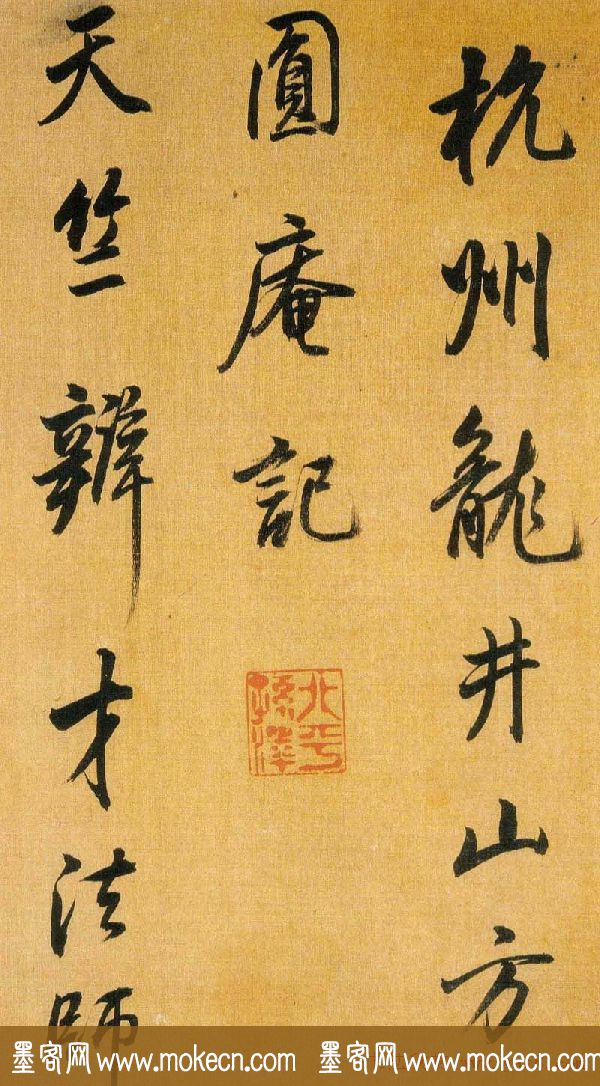 杭州龍井山方
圓庵記
天竺辯才法師
北平
孫澤
墨客网 www.mokecn.com 墨客网 www.mokecn.com